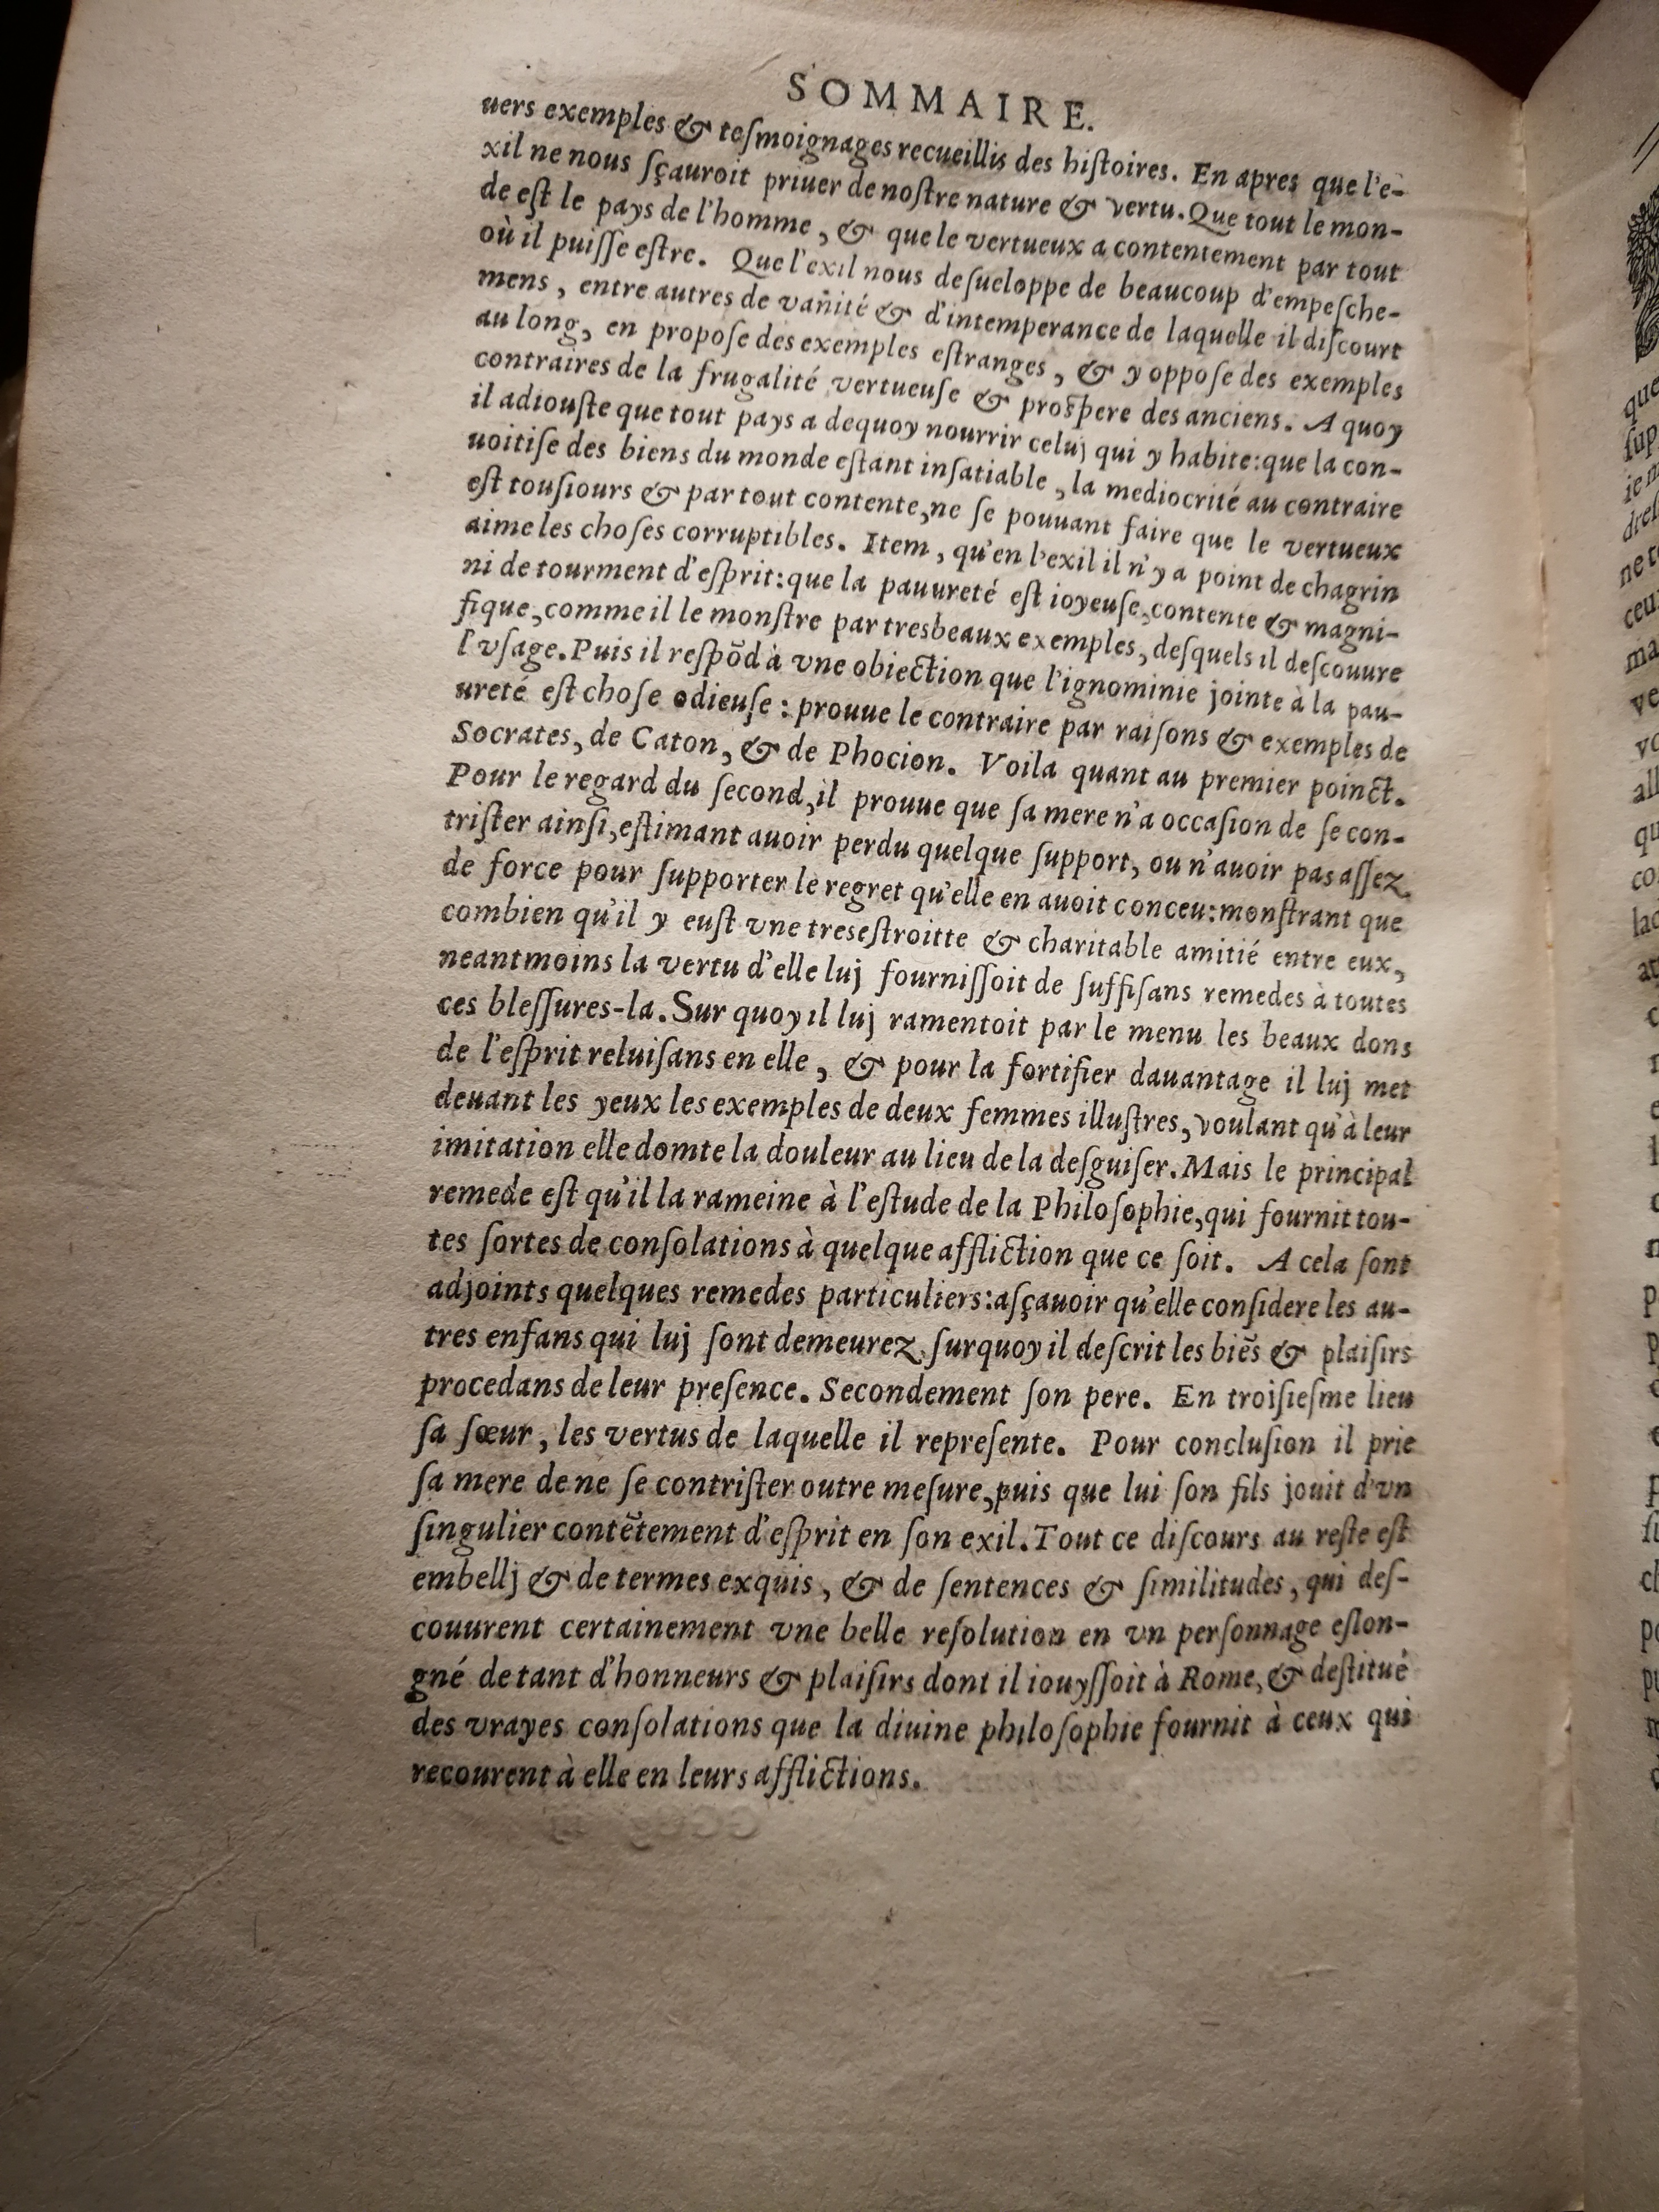 SOMMAIRE.
uers exemples & teſmoignages recueillis des hiſtoires. En apres que l'e-
xil ne nous ſçauroit priuer de noſtre nature & vertu. Que tout le mon-
de eſt le pays de l'homme, & que le vertueux a contentement par tout
où il puiſſe eſtre. Que l'exil nous deſueloppe de beaucoup d'empeſche-
mens, entre autres de vanité & d'intemperance de laquelle il diſcourt
au long, en propoſe des exemples eſtranges, & y oppoſe des exemples
contraires de la frugalité vertueuſe & proſpere des anciens. A quoy
il adiouſte que tout pays a dequoy nourrir celuj qui y habite: que la con-
uoitiſe des biens du monde eſtant inſatiable, la mediocrité au contraire
eſt touſiours & par tout contente, ne ſe pouuant faire que le vertueux
aime les choſes corruptibles. Item, qu'en l'exil il n'y a point de chagrin
ni de tourment d'eſprit: que la pauureté eſt ioyeuſe, contente & magni-
fique, comme il le monſtre par tresbeaux exemples, deſquels il deſcouure
l'vſage. Puis il reſpõd à vne obiection que l'ignominie jointe à la pau-
ureté eſt choſe odieuſe: prouue le contraire par raiſons & exemples de
Socrates, de Caton, & de Phocion. Voila quant au premier poinct.
Pour le regard du ſecond, il prouue que ſa mere n'a occaſion de ſe con-
triſter ainſi, eſtimant auoir perdu quelque ſupport, ou n'auoir pas aſſez
de force pour ſupporter le regret qu'elle en auoit conceu: monſtrant que
combien qu'il y euſt vne treseſtroitte & charitable amitié entre eux,
neantmoins la vertu d'elle luj fourniſſoit de ſuffiſans remedes à toutes
ces bleſſures-la. Sur quoy il luj ramentoit par le menu les beaux dons
de l'eſprit reluiſans en elle, & pour la fortifier dauantage il luj met
deuant les yeux les exemples de deux femmes illuſtres, voulant qu'à leur
imitation elle domte la douleur au lieu de la deſguiſer. Mais le principal
remede eſt qu'il la rameine à l'eſtude de la Philoſophie, qui fournit tou-
tes ſortes de conſolations à quelque affliction que ce ſoit. A cela ſont
adjoints quelques remedes particuliers: aſçauoir qu'elle conſidere les au-
tres enfans qui luj ſont demeurez, ſurquoy il deſcrit les biẽs & plaiſirs
procedans de leur preſence. Secondement ſon pere. En troiſieſme lieu
ſa ſœur, les vertus de laquelle il repreſente. Pour concluſion il prie
ſa mere de ne ſe contriſter outre meſure, puis que lui ſon fils jouit d'vn
ſingulier contẽtement d'eſprit en ſon exil. Tout ce diſcours au reſte eſt
embellj & de termes exquis, & de ſentences & ſimilitudes, qui deſ-
couurent certainement vne belle reſolution en vn perſonnage eſlon-
gné de tant d'honneurs & plaiſirs dont il iouyſſoit à Rome, & deſtitué
des vrayes conſolations que la diuine philoſophie fournit à ceux qui
recourent à elle en leurs afflictions.